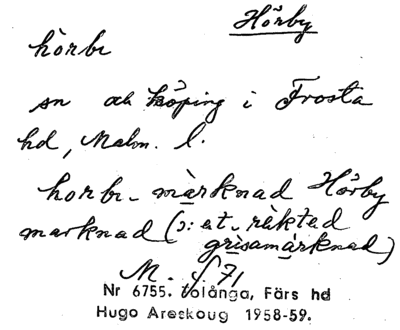 Hörby
hörbı
sn och köping i Frosta
hd, Malm. l.
horbı- màrknad Hörby
marknad (ɔ: et- rıktıd
grisamàrknad)
M. f. 71
Nr 6755. Tolånga, Färs hd
Hugo Areskoug 1958-59.